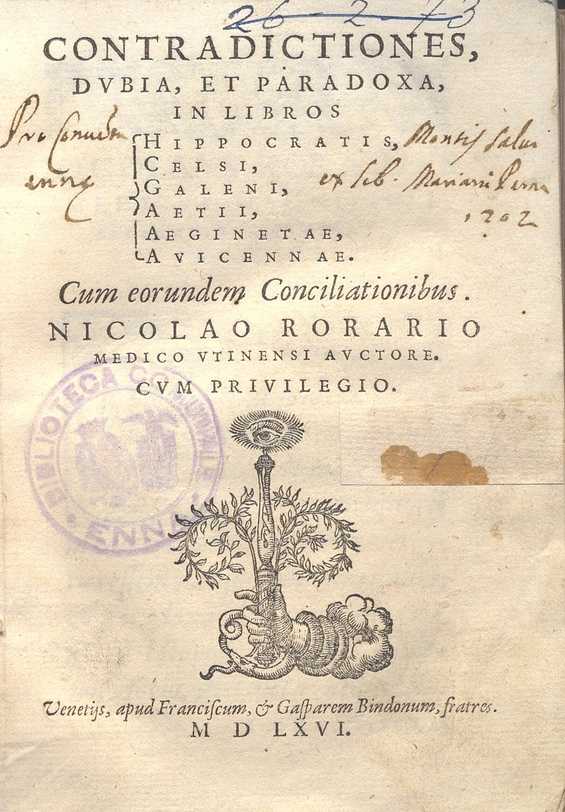 26-2-73
CONTRADICTIONES,
DVBIA, ET PARADOXA,
IN LIBROS
HIPPOCRATIS,
CELSI,
GALENI,
AETII,
AEGINETAE,
AVICENNAE.
Pro
Montis
ex
Mariani
1202
Cum eorundem Conciliationibus.
NICOLAO RORARIO
MEDICO VTINENSI AVCTORE.
CVM PRIVILEGIO.
BIBLIOTECA COMUNALE
ENNA
Venetijs, apud Franciſcum, & Gaſparem Bindonum, fratres.
M D LXVI.